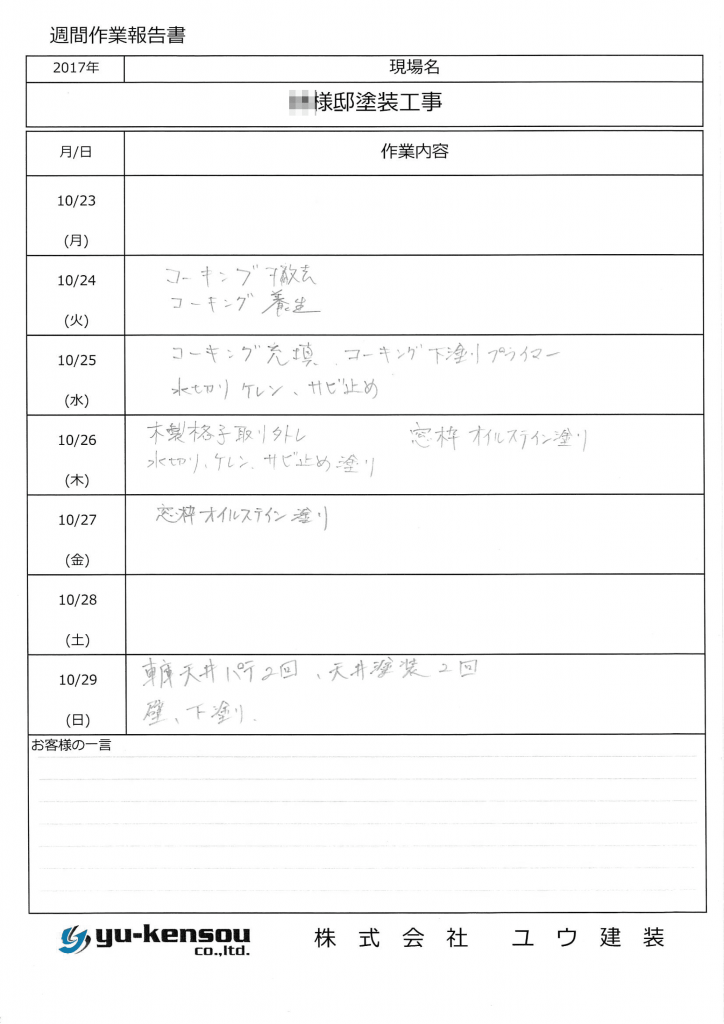 週間作業報告書
2017年 現場名
様邸塗装工事
月/日 作業内容
10/23
(月)
10/24 コーキング撤去
コーキング養生
(火)
10/25 コーキング充填、コーキング下塗りプライマー
水切りケレン、サビ止め
(水)
10/26 木製格子取り外し 窓枠オイルステイン塗り
水切り、ケレン、サビ止め塗り
(木)
10/27 窓枠オイルステイン塗り
(金)
10/28
(土)
10/29 車庫天井パテ2回、天井塗装2回
壁、下塗り.
(日)
お客様の一言
yu-kensou co.,ltd. 株式会社 ユウ建装